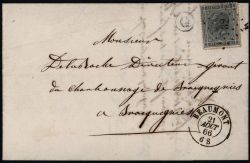 Monsieur
Delaroche Directeur gérant
du Charbonnage de Bracquegnies
à Bracquegnies
BEAUMONT
21
AOUT
66
6 S